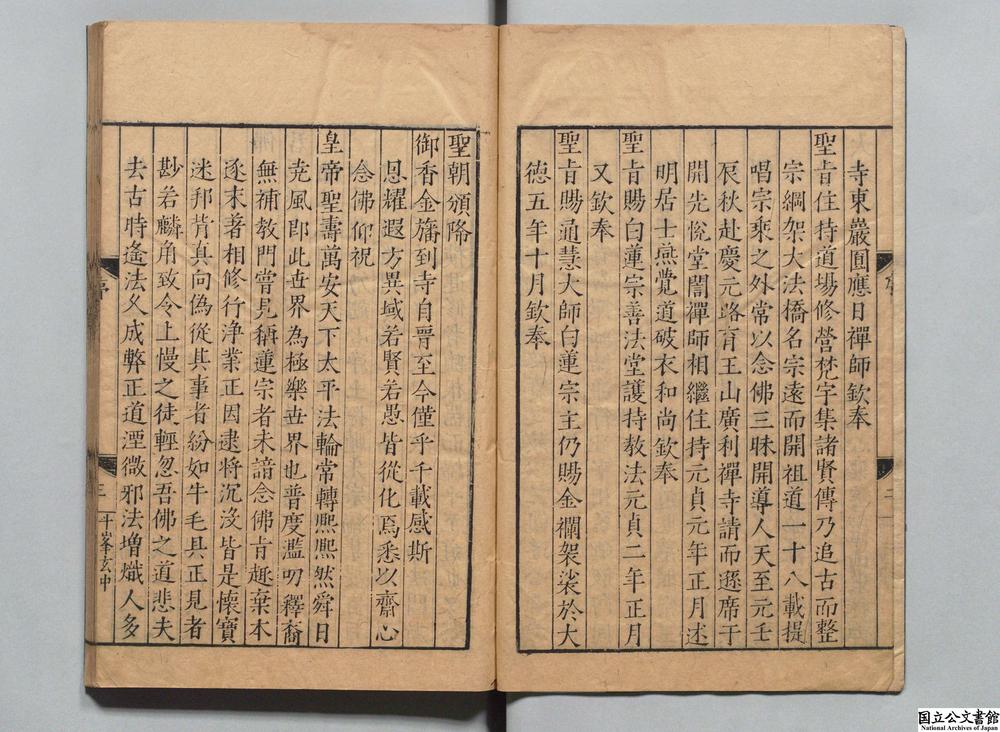 寺東巖圎應日禪師欽奉
聖旨住持道場修營梵宇集諸賢傳乃追古而整
宗綱架大法橋名宗遠而開祖道一十八載提
唱宗乘之外常以念佛三昧開導人天至元壬
辰秋赴慶元路育王山廣利禪寺請而遜席于
開先悅堂誾禪師相繼住持元貞元年正月述
明居士燕覺道破衣和尚欽奉
聖旨賜白蓮宗善法堂護持教法元貞二年正月
又欽奉
聖旨賜通慧大師白蓮宗主仍賜金襴袈裟於大
德五年十月欽奉
聖朝頒降
御香金旛到寺自晉至今僅乎千載感斯
恩耀遐方異域若賢若愚皆從化焉悉以齋心
念佛仰祝
皇帝聖壽萬安天下太平法輪常轉熈熈然舜日
堯風即此世界為極樂世界也普度濫叨釋裔
無補教門嘗見稱蓮宗者未諳念佛旨趣棄本
逐末著相修行淨業正因逮將沉没皆是懷寶
迷邦背真向偽從其事者紛如牛毛具正見者
尠若麟角致令上慢之徒輕忽吾佛之道悲夫
去古時遙法久成弊正道湮微邪法增熾人多
序
三
千峯玄中
国立公文書館
National Archives of Japan